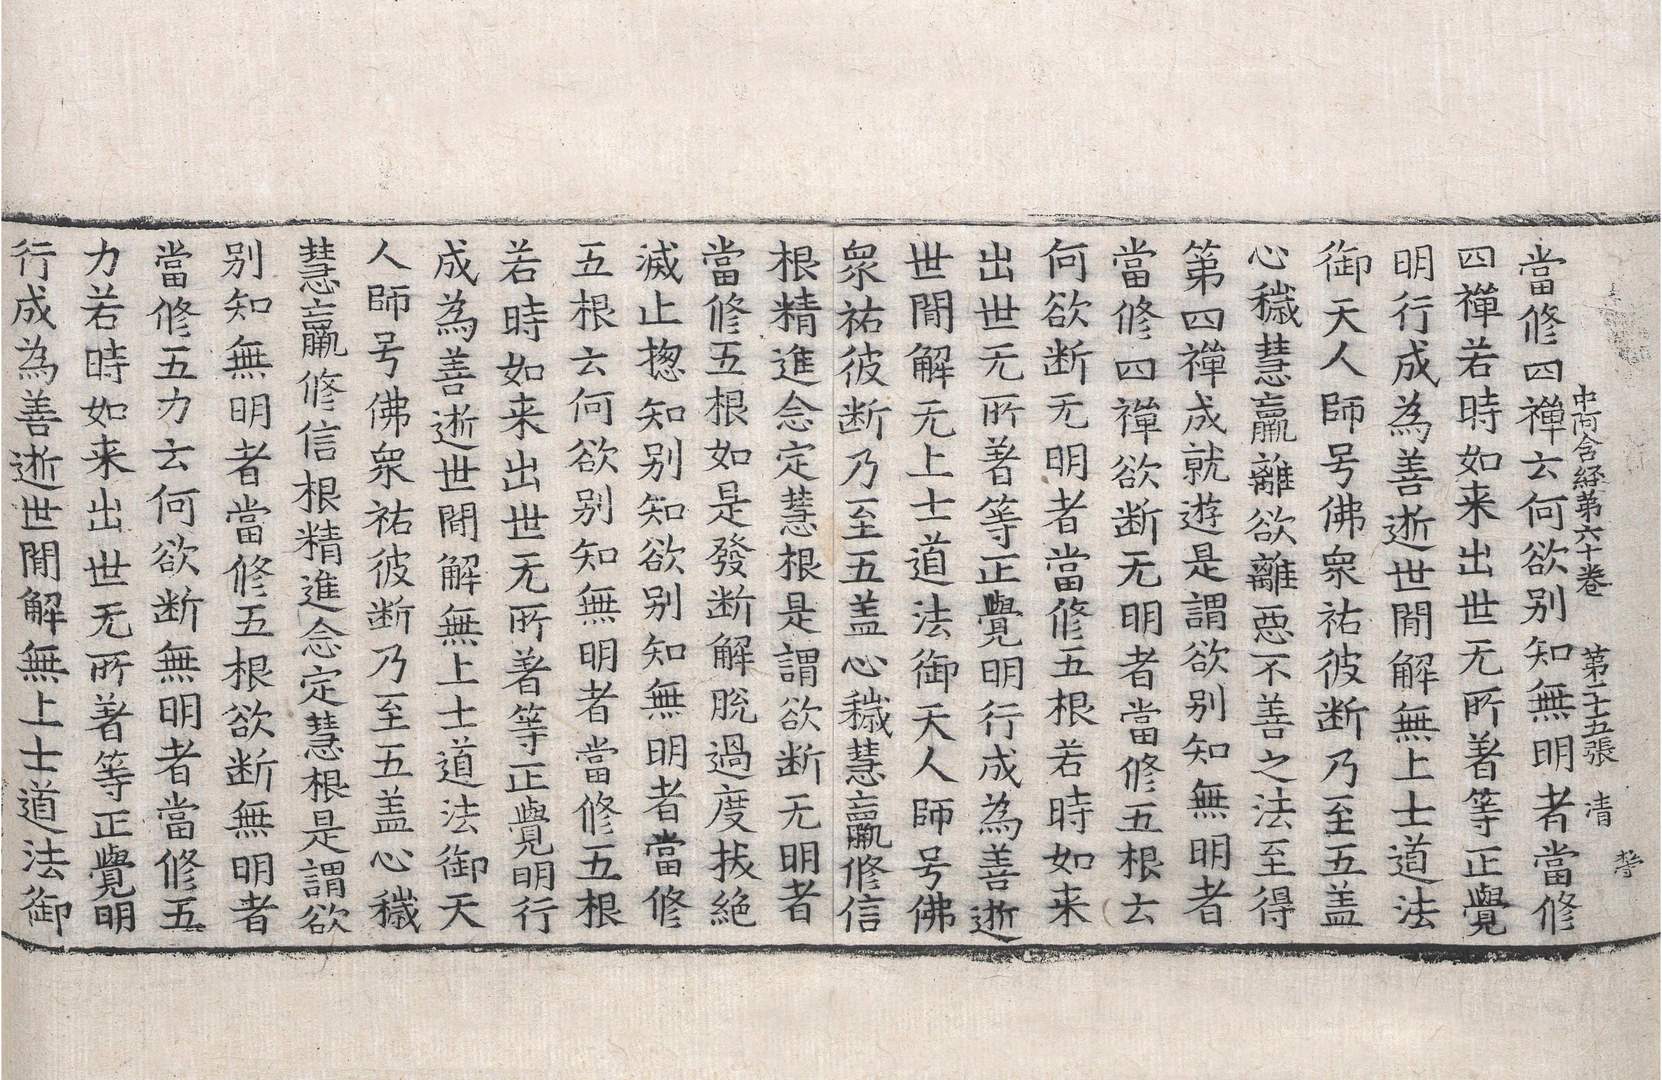 中阿含経第六十卷 第二十五張 清
當修四禪云何欲别知無明者當修
四禪若時如来出世无所著等正覺
明行成為善逝世間解無上士道法
御天人師号佛衆祐彼断乃至五盖
心穢慧羸離欲離惡不善之法至得
第四禪成就遊是謂欲别知無明者
當修四禪欲断无明者當修五根云
何欲断无明者當修五根若時如来
出世无所著等正覺明行成為善逝
世間解无上士道法御天人師号佛
衆祐彼断乃至五盖心穢慧羸修信
根精進念定慧根是謂欲断无明者
當修五根如是發断解脫過度拔絶
滅止揔知别知欲别知無明者當修
五根云何欲别知無明者當修五根
若時如来出世无所著等正覺明行
成為善逝世間解無上士道法御天
人師号佛衆祐彼断乃至五盖心穢
慧羸修信根精進念定慧根是謂欲
别知無明者當修五根欲断無明者
當修五力云何欲断無明者當修五
力若時如来出世无所著等正覺明
行成為善逝世間解無上士道法御